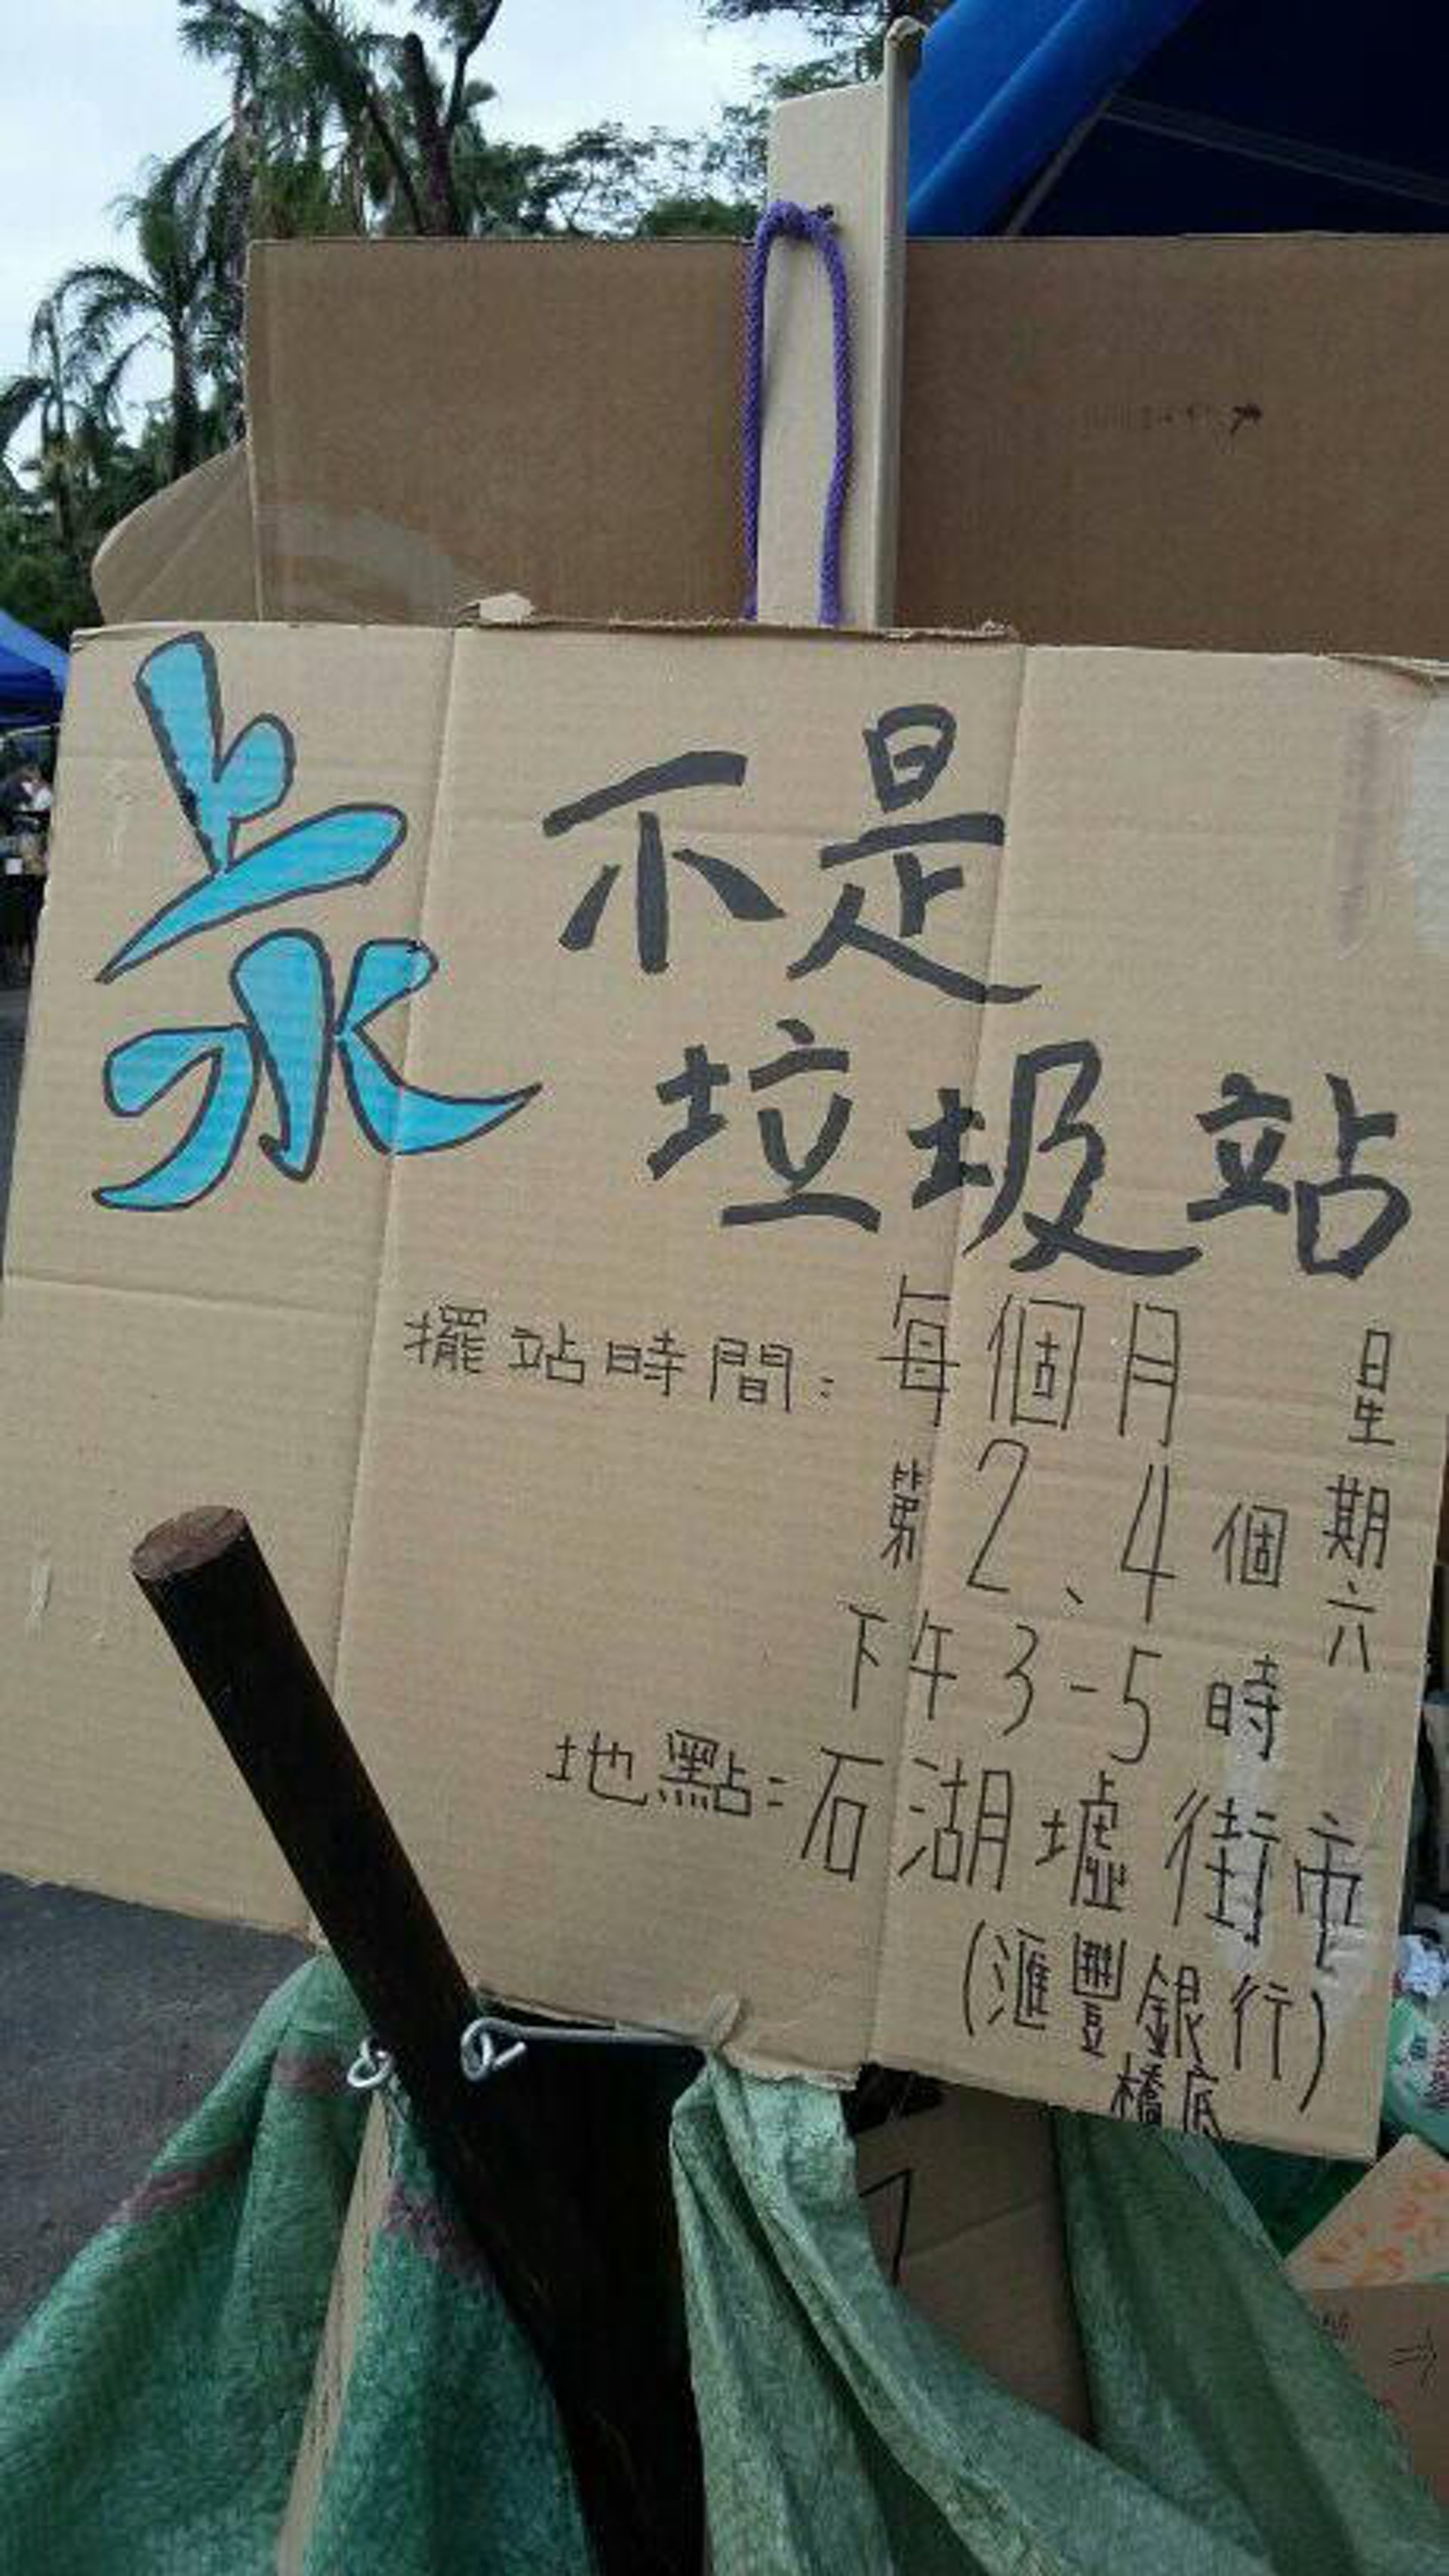 上水
不是
垃圾站
擺站時間：每個月
第2、4個星期六
下午3-5時
地點：石湖墟街市
(滙豐銀行)
橋底